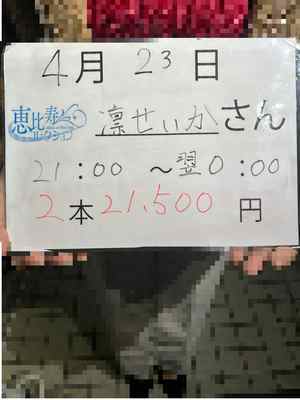 4月 23日
恵比寿
凛せいかさん
21:00 ～翌0:00
2本21.500 円